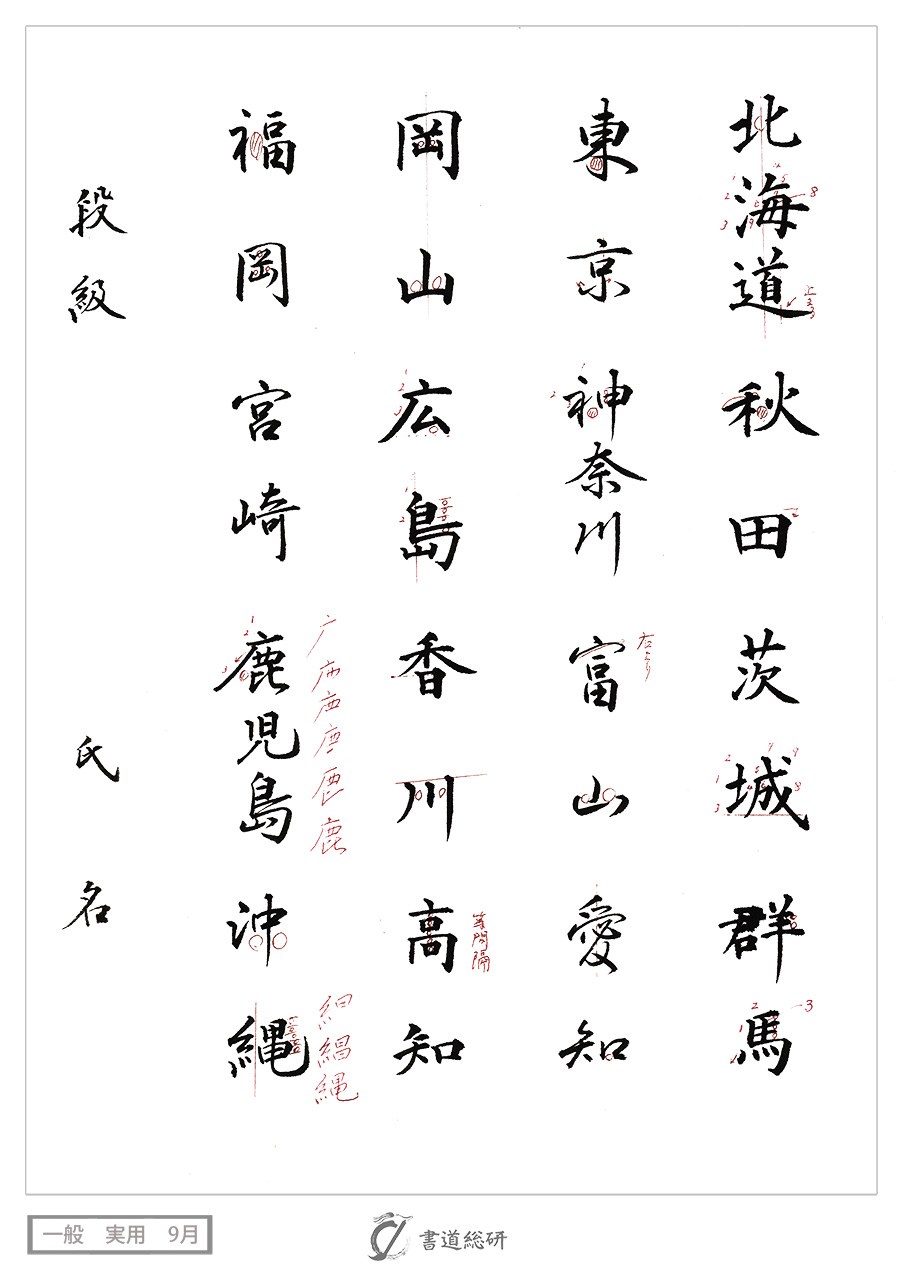 北海道 秋田 茨城 群馬
東京 神奈川 富山 愛知
岡山 広島 香川 高知
福岡 宮崎 鹿児島 沖縄
段級 氏名
1
2
3
8
9
止める
右より
等間隔
鹿
縄
一般 実用 9月
書道総研